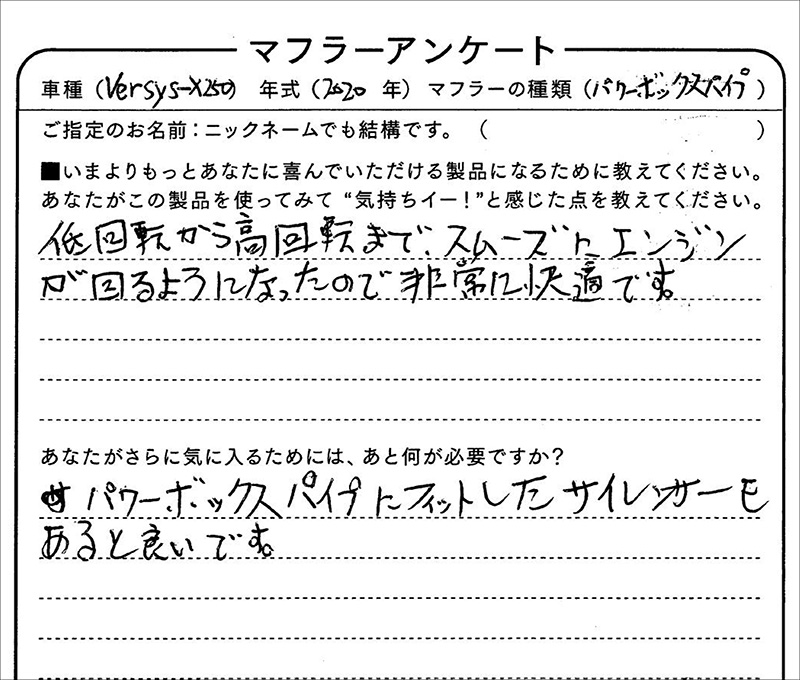 マフラーアンケート
車種(Versys-X250) 年式(2020 年) マフラーの種類(パワーボックスパイプ)
ご指定のお名前:ニックネームでも結構です。( )
■いまよりもっとあなたに喜んでいただける製品になるために教えてください。
あなたがこの製品を使ってみて“気持ちイー!”と感じた点を教えてください。
低回転から高回転まで、スムーズにエンジン
が回るようになったので非常に快適です。
あなたがさらに気に入るためには、あと何が必要ですか?
パワーボックスパイプにフィットしたサイレンサーも
あると良いです。